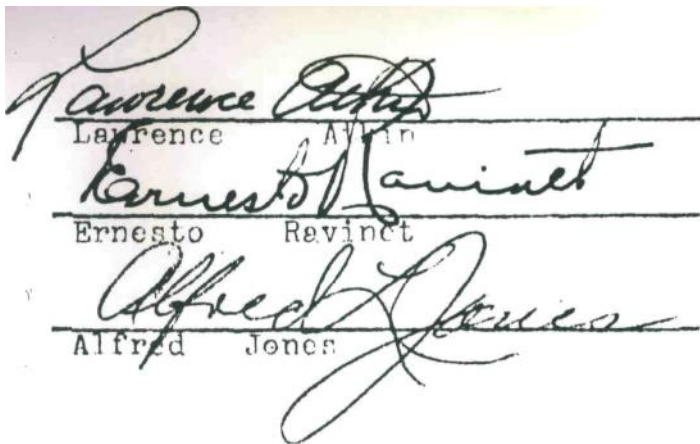 Lawrence Atkin
Lawrence Atkin
Ernesto Ravinet
Ernesto Ravinet
Alfred L Jones
Alfred Jones